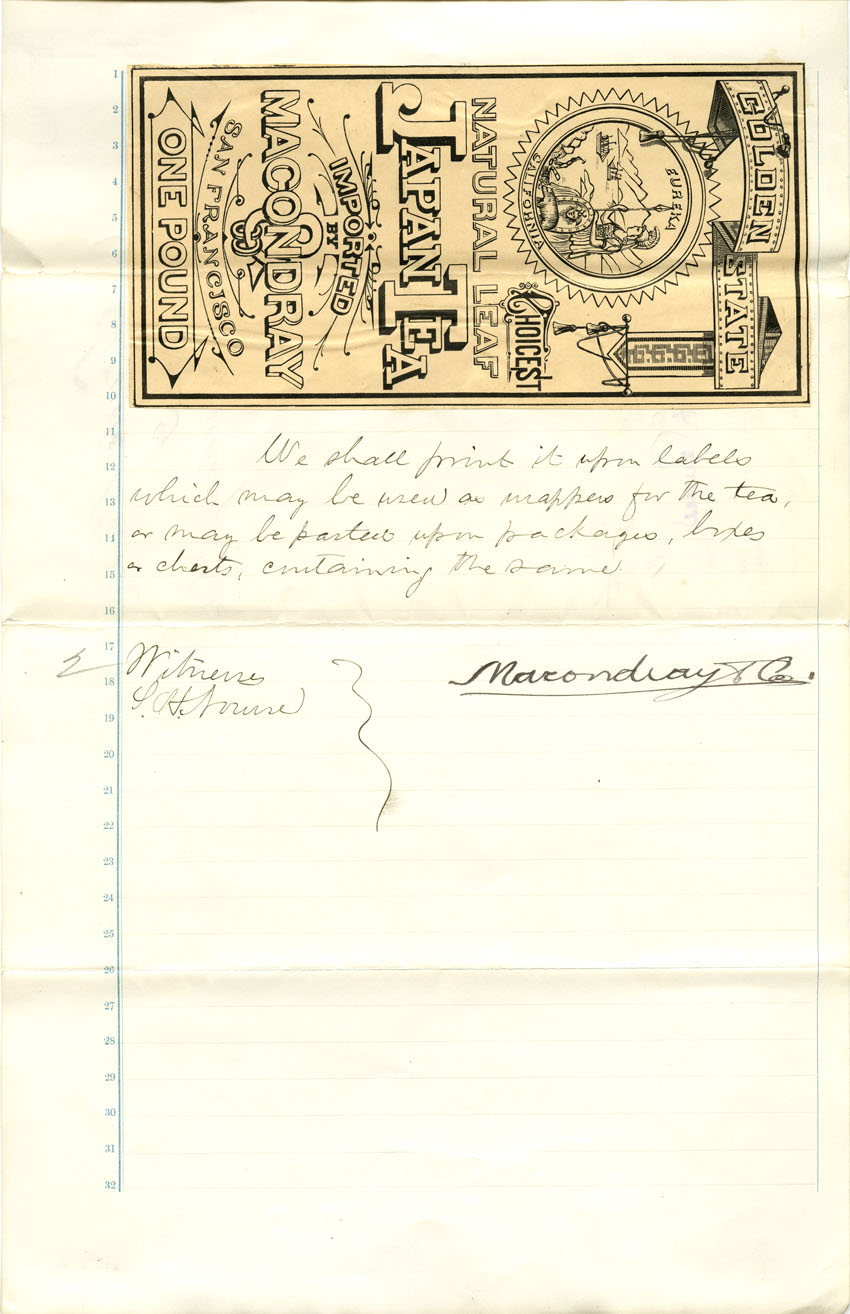 GOLDEN
STATE
EUREKA
CALIFORNIA
CHOICEST
NATURAL LEAF
JAPAN TEA
IMPORTED
BY
MACONDRAY
& CO
SAN FRANCISCO
ONE POUND
We shall print it upon labels
which may be used as wrappers for the tea,
or may be pasted upon packages, boxes
or chests, containing the same
Witness
S. H. Nourse
Macondray & Co.
1
2
3
4
5
6
7
8
9
10
11
12
13
14
15
16
17
18
19
20
21
22
23
24
25
26
27
28
29
30
31
32